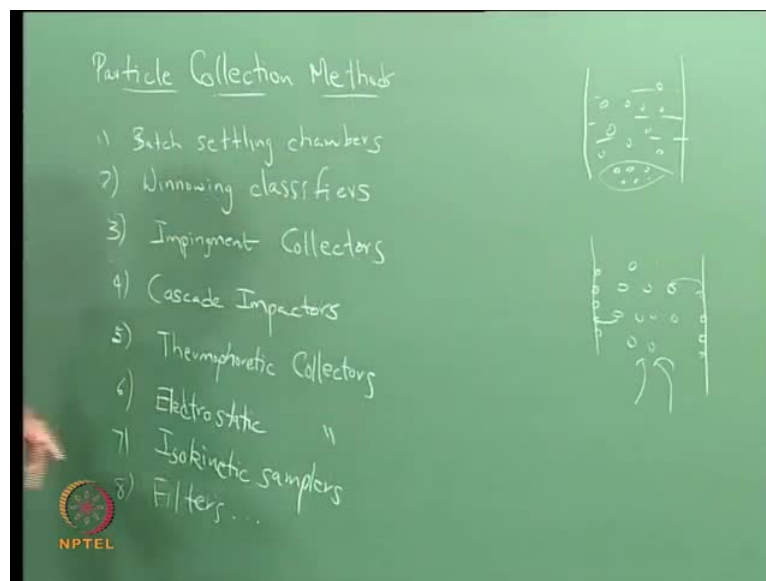 Particle Collection Methods
1) Batch settling chambers
2) Winnowing classifiers
3) Impingment Collectors
4) Cascade Impactors
5) Thermophoretic Collectors
6) Electrostatic "
7) Isokinetic samplers
8) Filters...
NPTEL